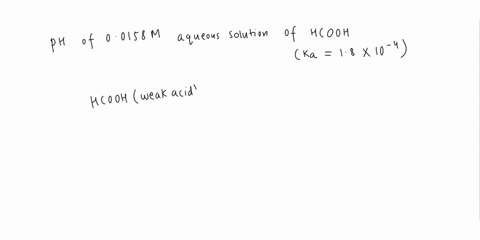 pH of 0.0158M aqueous solution of HCOOH
(Ka = 1.8 × 10⁻⁴)
HCOOH (weak acid)